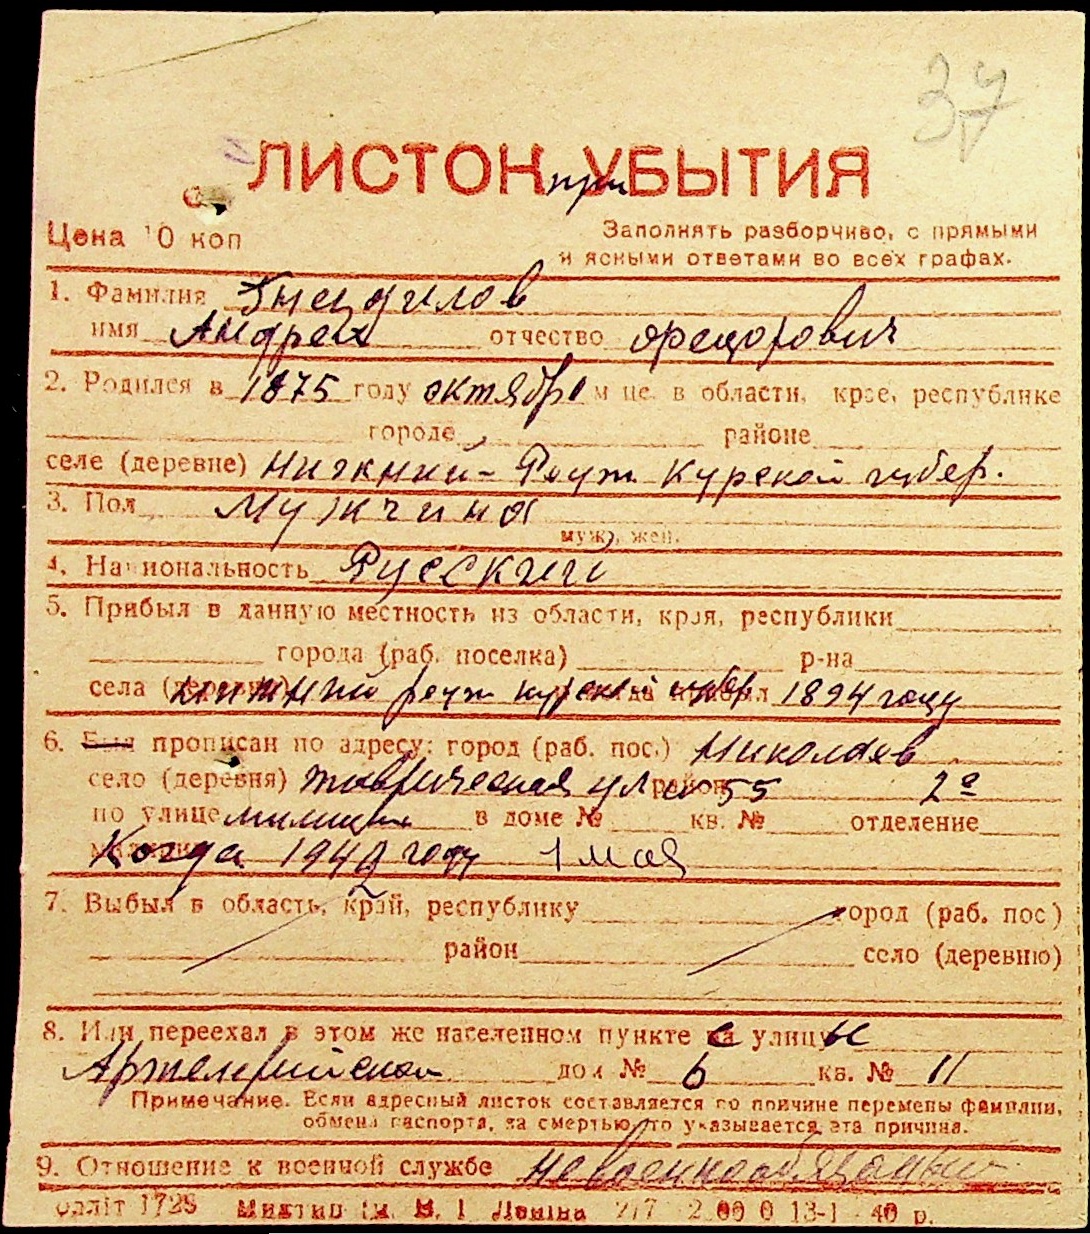 37
ЛИСТОК при УБЫТИЯ
Цена 10 коп
Заполнять разборчиво, с прямыми
и ясными ответами во всех графах.
1. Фамилия Гнездилов
имя Андрей отчество Федорович
2. Родился в 1875 году октябр м-це, в области, крае, республике
городе районе
селе (деревне) Нижний-Реут Курской губер.
3. Пол Мужчина
муж., жен.
4. Национальность Русский
5. Прибыл в данную местность из области, края, республики
города (раб. поселка) р-на
села (деревни) нижний реут курской губер 1894 году
6. Был прописан по адресу: город (раб. пос.) Николаев
село (деревня) таврическая ул район 55 2е
по улице милиции в доме № кв. № отделение
Когда 1942 году 1 мая
7. Выбыл в область, край, республику город (раб. пос)
район село (деревню)
8. Или переехал в этом же населенном пункте с улицы
Артелерийской дом № 6 кв. № 11
Примечание. Если адресный листок составляется по причине перемены фамилии,
обмена паспорта, за смертью, то указывается эта причина.
9. Отношение к военной службе Невоеннообязанный
1728 Ім. В. І. Леніна 217 13-1 40 р.